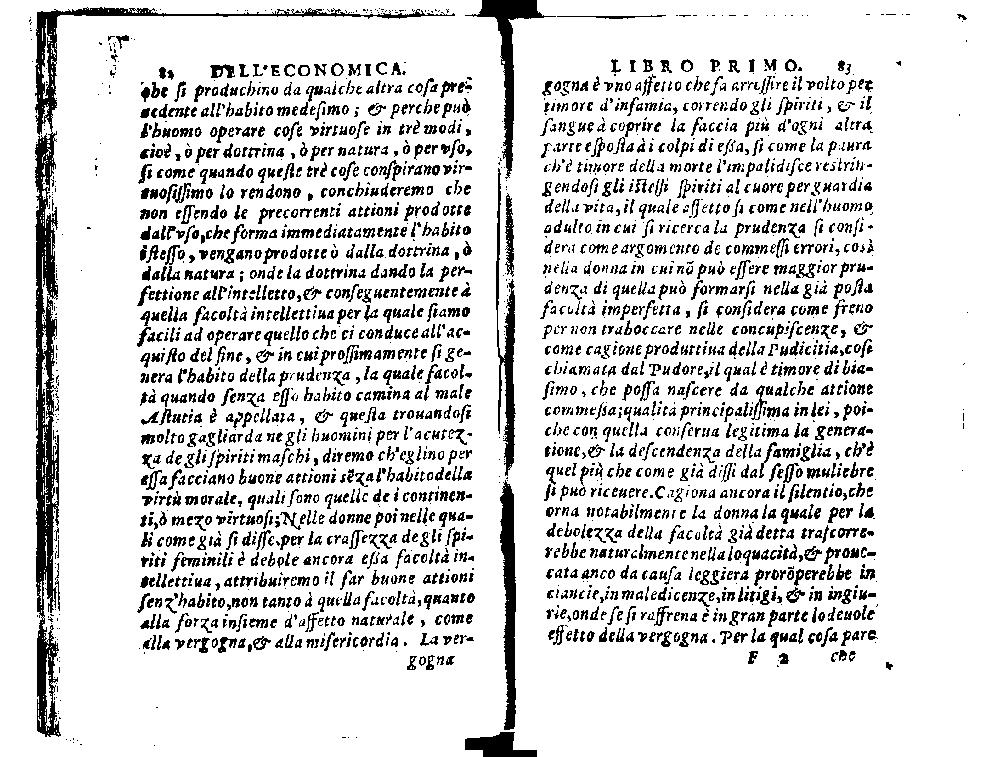 82 DELL'ECONOMICA.
che si produchino da qualche altra cosa pre-
cedente all'habito medesimo ; & perche può
l'huomo operare cose virtuose in trè modi,
cioè, ò per dottrina , ò per natura , ò per vso,
si come quando queste trè cose conspirano vir-
tuosissimo lo rendono , conchiuderemo che
non essendo le precorrenti attioni prodotte
dall'vso, che forma immediatamente l'habito
istesso , vengano prodotte ò dalla dottrina , ò
dalla natura ; onde la dottrina dando la per-
fettione all'intelletto, & conseguentemente à
quella facoltà intellettiua per la quale siamo
facili ad operare quello che ci conduce all'ac-
quisto del fine , & in cui prossimamente si ge-
nera l'habito della prudenza , la quale facol-
tà quando senza esso habito camina al male
Astutia è appellata , & questa trouandosi
molto gagliarda ne gli huomini per l'acutez-
za de gli spiriti maschi, diremo ch'eglino per
essa facciano buone attioni sēza l'habito della
virtù morale, quali sono quelle de i continen-
ti, ò mezo virtuosi; Nelle donne poi nelle qua-
li come già si disse, per la crassezza de gli spi-
riti feminili è debole ancora essa facoltà in-
tellettiua , attribuiremo il far buone attioni
senz'habito, non tanto à quella facoltà, quanto
alla forza insieme d'affetto naturale , come
alla vergogna, & alla misericordia . La ver-
gogna
LIBRO PRIMO. 83
gogna è vno affetto che fa arrossire il volto per
timore d'infamia, correndo gli spiriti , & il
sangue à coprire la faccia più d'ogni altra
parte esposta à i colpi di essa, si come la paura
ch'è timore della morte l'impalidisce restrin-
gendosi gli istessi spiriti al cuore per guardia
della vita, il quale affetto si come nell'huomo
adulto in cui si ricerca la prudenza si consi-
dera come argomento de commessi errori, così
nella donna in cui nō può essere maggior pru-
denza di quella può formarsi nella già posta
facoltà imperfetta , si considera come freno
per non traboccare nelle concupiscenze, &
come cagione produttiua della Pudicitia, così
chiamata dal Pudore, il qual è timore di bia-
simo , che possa nascere da qualche attione
commessa; qualità principalissima in lei , poi-
che con quella conserua legitima la genera-
tione, & la descendenza della famiglia , ch'è
quel più che come già dissi dal sesso muliebre
si può riceuere. Cagiona ancora il silentio, che
orna notabilmente la donna la quale per la
debolezza della facoltà già detta trascorre-
rebbe naturalmente nella loquacità, & prouo-
cata anco da causa leggiera prorōperebbe in
ciancie, in maledicenze, in litigi, & in ingiu-
rie, onde se si raffrena è in gran parte lodeuole
effetto della vergogna. Per la qual cosa pare
F 2 che